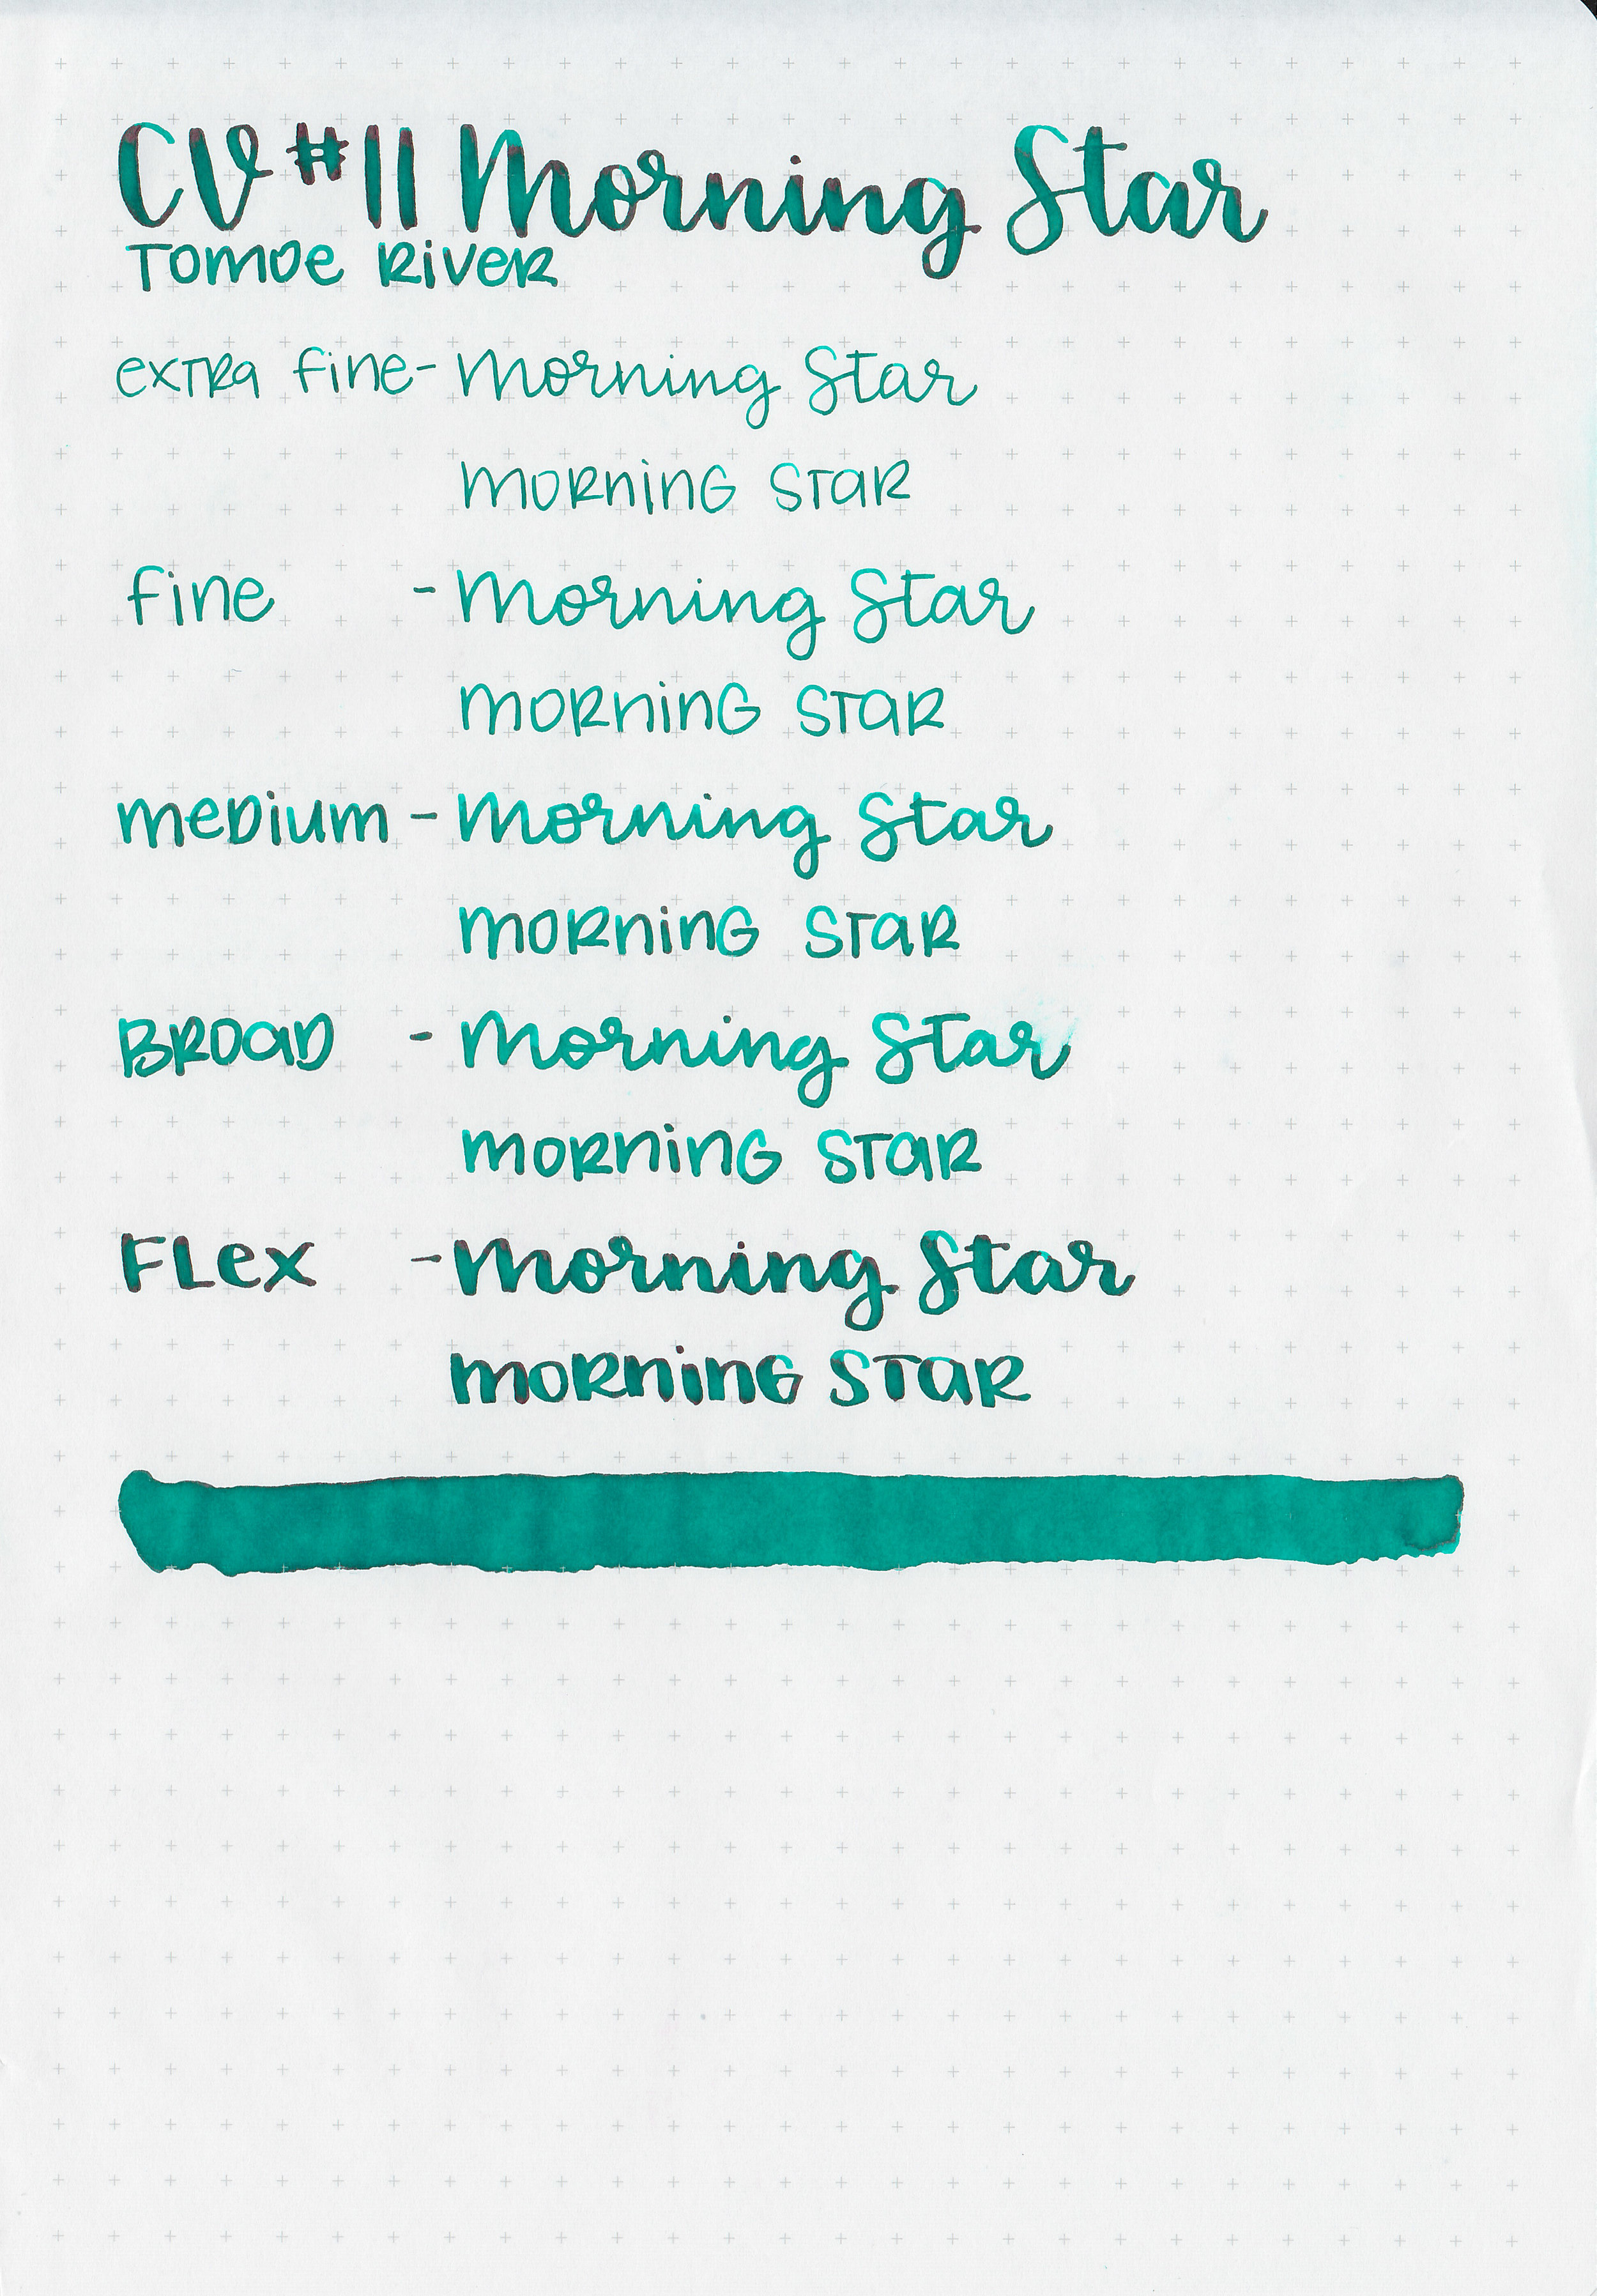 CV #11 Morning Star
Tomoe River
extra fine - Morning Star
morning star
fine - Morning Star
morning star
medium - Morning Star
morning star
Broad - Morning Star
morning star
Flex - Morning Star
morning star